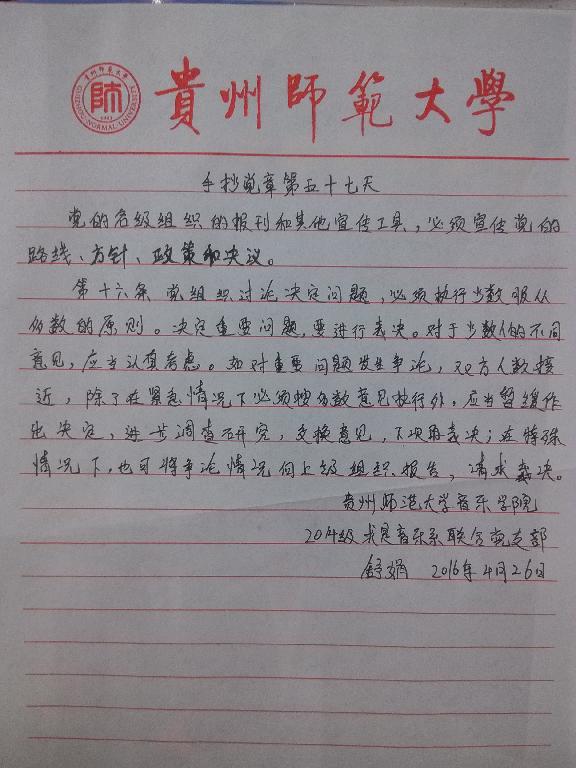 貴州師範大學
貴州師範大學
GUIZHOU NORMAL UNIVERSITY
師
1941
手抄党章第五十七天
党的各级组织的报刊和其他宣传工具，必须宣传党的
路线、方针、政策和决议。
第十六条 党组织讨论决定问题，必须执行少数服从
多数的原则。决定重要问题，要进行表决。对于少数人的不同
意见，应当认真考虑。如对重要问题发生争论，双方人数接
近，除了在紧急情况下必须按多数意见执行外，应当暂缓作
出决定，进一步调查研究，交换意见，下次再表决；在特殊
情况下，也可将争论情况向上级组织报告，请求裁决。
贵州师范大学音乐学院
2014级求是音乐系联合党支部
舒娟 2016年4月26日